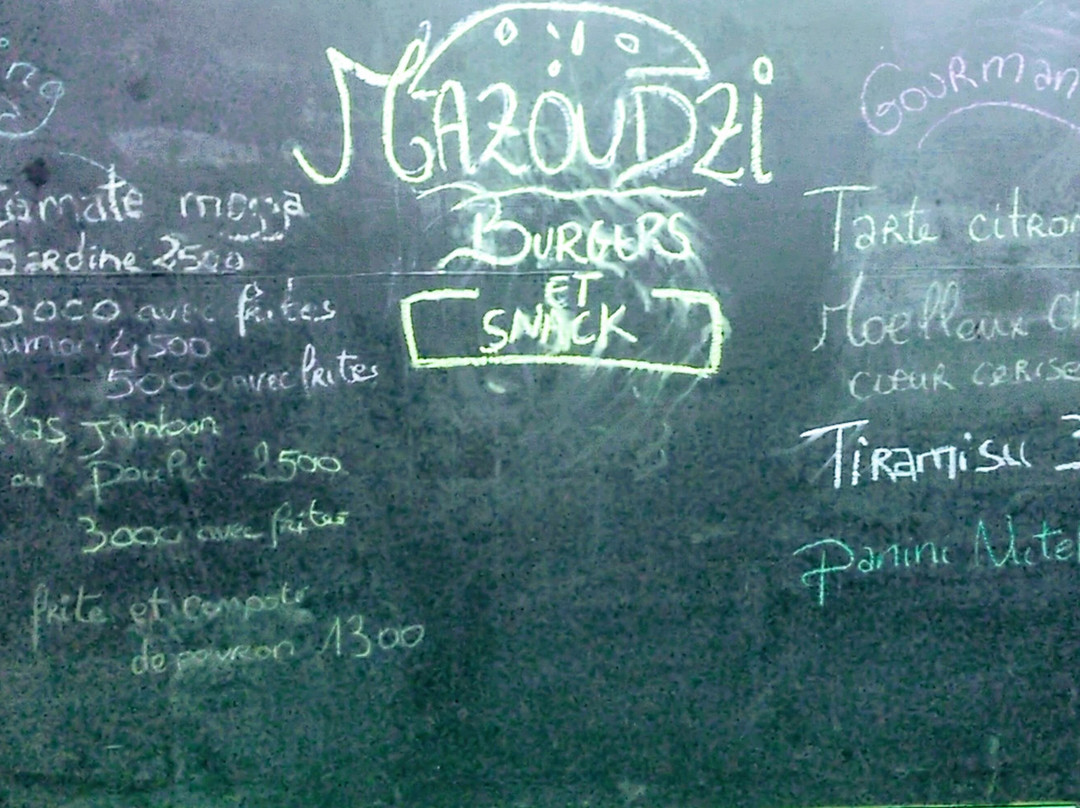 MAZOUDZI
BURGERS
ET
SNACK
Tomate mozza
Sardine 2500
3000 avec frites
4,500
5000 avec frites
jambon
ou poulet 2500
3000 avec frites
frite et compote
de poivron 1300
GOURMAN
Tarte citron
Moelleux Ch
coeur cerise
Tiramisu 3
Panini Nutel